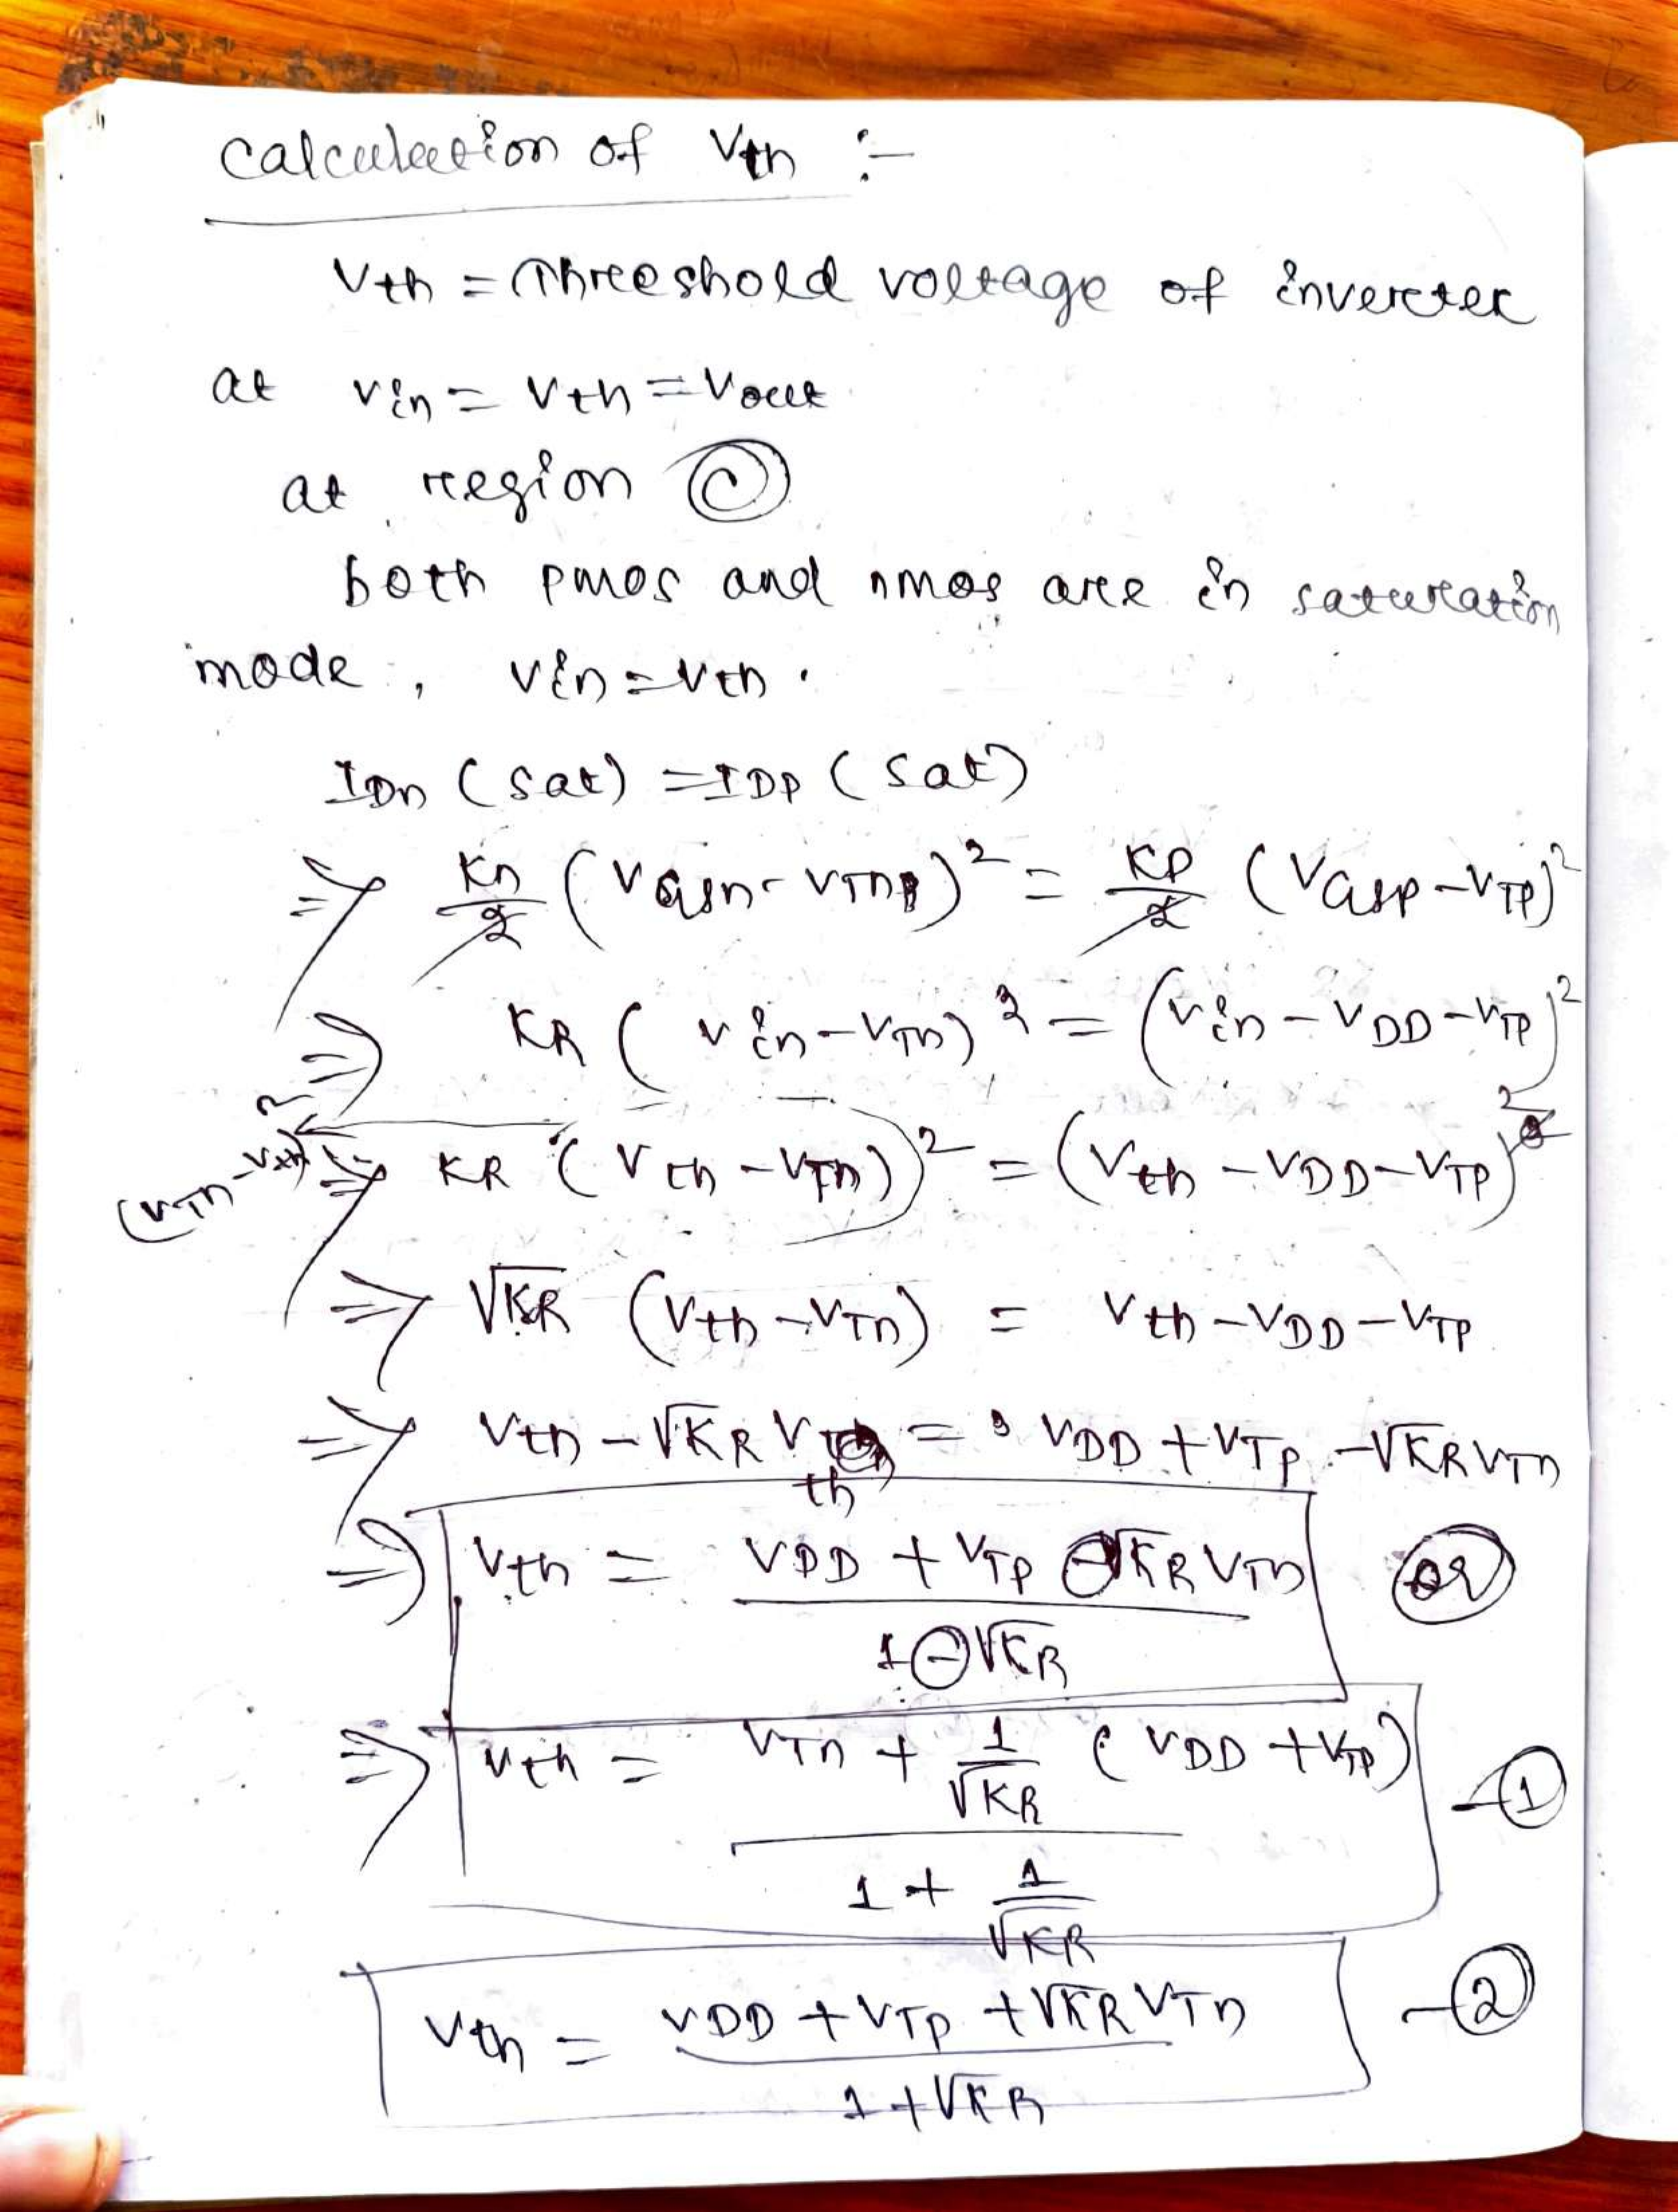 Calculation of Vth :-
Vth = Threshold voltage of inverter
at Vin = Vth = Vout
at region Ⓒ
both pmos and nmos are in saturation
mode, Vin = Vth.
IDn (sat) = IDP (sat)
⇒ Kn/2 (VGSn - VTn)² = KP/2 (VGSP - VTP)²
⇒ KR (Vin - VTn)² = (Vin - VDD - VTP)²
(VTn - Vth)²
⇒ KR (Vth - VTn)² = (Vth - VDD - VTP)²
⇒ √KR (Vth - VTn) = Vth - VDD - VTP
⇒ Vth - √KR Vth = VDD + VTP - √KR VTn
⇒ Vth = (VDD + VTP - √KR VTn) / (1 - √KR) or
⇒ Vth = (VTn + 1/√KR (VDD + VTP)) / (1 + 1/√KR) - ①
Vth = (VDD + VTP + √KR VTn) / (1 + √KR) - ②